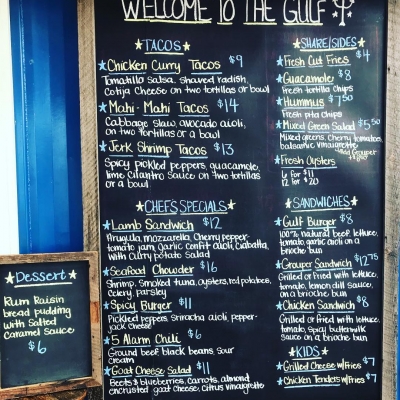 WELCOME TO THE GULF
TACOS
Chicken Curry Tacos $9
Tomatillo salsa, shaved radish,
Cotija Cheese on two tortillas or bowl
Mahi-Mahi Tacos $14
Cabbage slaw avocado aioli,
on two tortillas or a bowl
Jerk Shrimp Tacos $13
Spicy pickled peppers, guacamole,
lime cilantro sauce on two tortillas
or a bowl
CHEF'S SPECIALS
Lamb Sandwich $12
Arugula, mozzarella, Cherry pepper-
tomato jam, garlic confit aioli, ciabatta,
with curry potato salad
Seafood Chowder $16
Shrimp, smoked tuna, oysters, red potatoes,
Celery, parsley
Spicy Burger $11
Pickled peppers, Sriracha aioli, pepper-
jack cheese
5 Alarm Chili $6
Ground beef, black beans, sour
cream
Goat Cheese Salad $11
Beets & blueberries, carrots, almond
encrusted goat cheese, Citrus vinaigrette
SHARE/SIDES
Fresh Cut Fries $4
Guacamole $8
Fresh tortilla chips
Hummus $7.50
Fresh pita chips
Mixed Green Salad $5.50
Mixed greens, Cherry tomatoes,
balsamic vinaigrette
*Add Grouper
Fresh Oysters
6 for $11
12 for $20
SANDWICHES
Gulf Burger $8
100% natural beef, lettuce,
tomato, garlic aioli on a
brioche bun
Grouper Sandwich $12.75
Grilled or Fried with lettuce,
tomato, lemon dill sauce,
on a brioche bun
Chicken Sandwich $8
Grilled or fried with lettuce,
tomato, spicy buttermilk
sauce on a brioche bun
KIDS
Grilled Cheese w/fries $7
Chicken Tenders w/fries $7
Dessert
Rum Raisin
bread pudding
with Salted
Caramel Sauce
$6